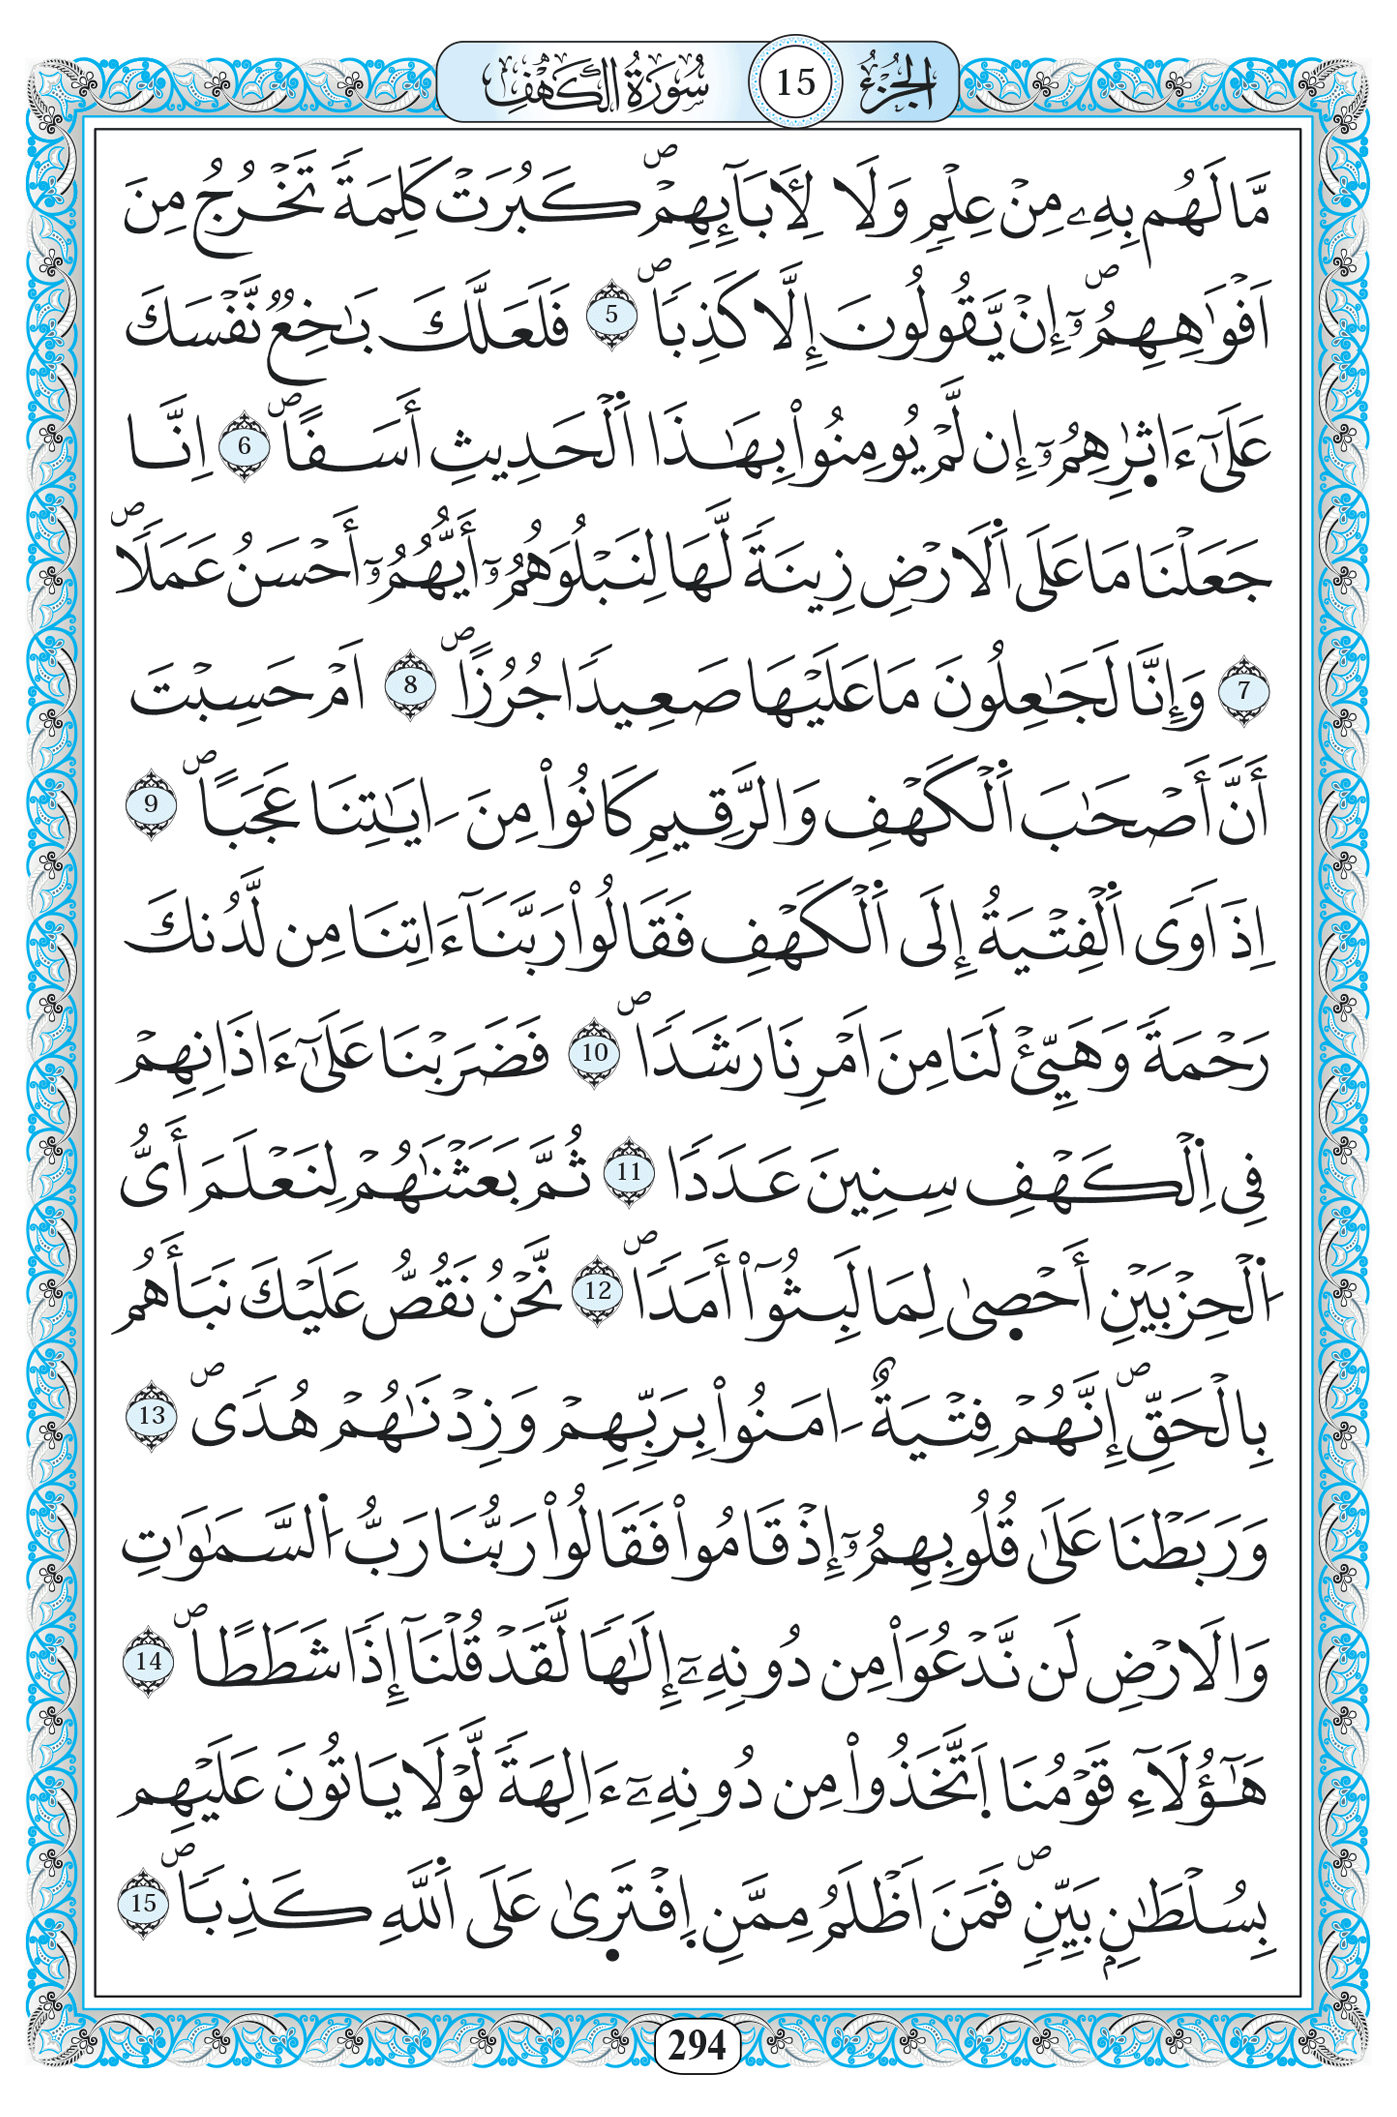 الجزء 15 سورة الكهف
مَّا لَهُم بِهِۦ مِنْ عِلْمٍ وَلَا لِأٓبَآئِهِمْۖ كَبُرَتْ كَلِمَةً تَخْرُجُ مِنَ
اَفْوَٰهِهِمُۥٓۖ إِنْ يَّقُولُونَ إِلَّا كَذِباًۖ 5 فَلَعَلَّكَ بَٰخِعٌ نَّفْسَكَ
عَلَىٰٓ ءَاثٰرِهِمُۥٓ إِن لَّمْ يُومِنُواْ بِهَٰذَا اَ۬لْحَدِيثِ أَسَفاًۖ 6 اِنَّا
جَعَلْنَا مَا عَلَى اَ۬لَارْضِ زِينَةً لَّهَا لِنَبْلُوَهُمُۥٓ أَيُّهُمُۥٓ أَحْسَنُ عَمَلاًۖ
7 وَإِنَّا لَجَٰعِلُونَ مَا عَلَيْهَا صَعِيداً جُرُزاًۖ 8 اَمْ حَسِبْتَ
أَنَّ أَصْحَٰبَ اَ۬لْكَهْفِ وَالرَّقِيمِ كَانُواْ مِنَ اٰيَٰتِنَا عَجَباًۖ 9
اِذَ اَوَى اَ۬لْفِتْيَةُ إِلَى اَ۬لْكَهْفِ فَقَالُواْ رَبَّنَآ ءَاتِنَا مِن لَّدُنكَ
رَحْمَةً وَهَيِّئْ لَنَا مِنَ اَمْرِنَا رَشَداًۖ 10 فَضَرَبْنَا عَلَىٰٓ ءَاذَانِهِمْ
فِي اِ۬لْكَهْفِ سِنِينَ عَدَداً 11 ثُمَّ بَعَثْنَٰهُمْ لِنَعْلَمَ أَيُّ
اَ۬لْحِزْبَيْنِ أَحْصىٰ لِمَا لَبِثُوٓاْ أَمَداًۖ 12 نَّحْنُ نَقُصُّ عَلَيْكَ نَبَأَهُم
بِالْحَقِّۖ إِنَّهُمْ فِتْيَةٌ اٰمَنُواْ بِرَبِّهِمْ وَزِدْنَٰهُمْ هُدىًۖ 13
وَرَبَطْنَا عَلَىٰ قُلُوبِهِمُۥٓ إِذْ قَامُواْ فَقَالُواْ رَبُّنَا رَبُّ اُ۬لسَّمَٰوَٰتِ
وَالَارْضِ لَن نَّدْعُوَاْ مِن دُونِهِۦٓ إِلَٰهاً لَّقَدْ قُلْنَآ إِذاً شَطَطاًۖ 14
هَٰٓؤُلَآءِ قَوْمُنَا اَ۪تَّخَذُواْ مِن دُونِهِۦٓ ءَالِهَةً لَّوْلَا يَاتُونَ عَلَيْهِم
بِسُلْطَٰنِۢ بَيِّنٍۖ فَمَنَ اَظْلَمُ مِمَّنِ اِ۪فْتَرىٰ عَلَى اَ۬للَّهِ كَذِباًۖ 15
294